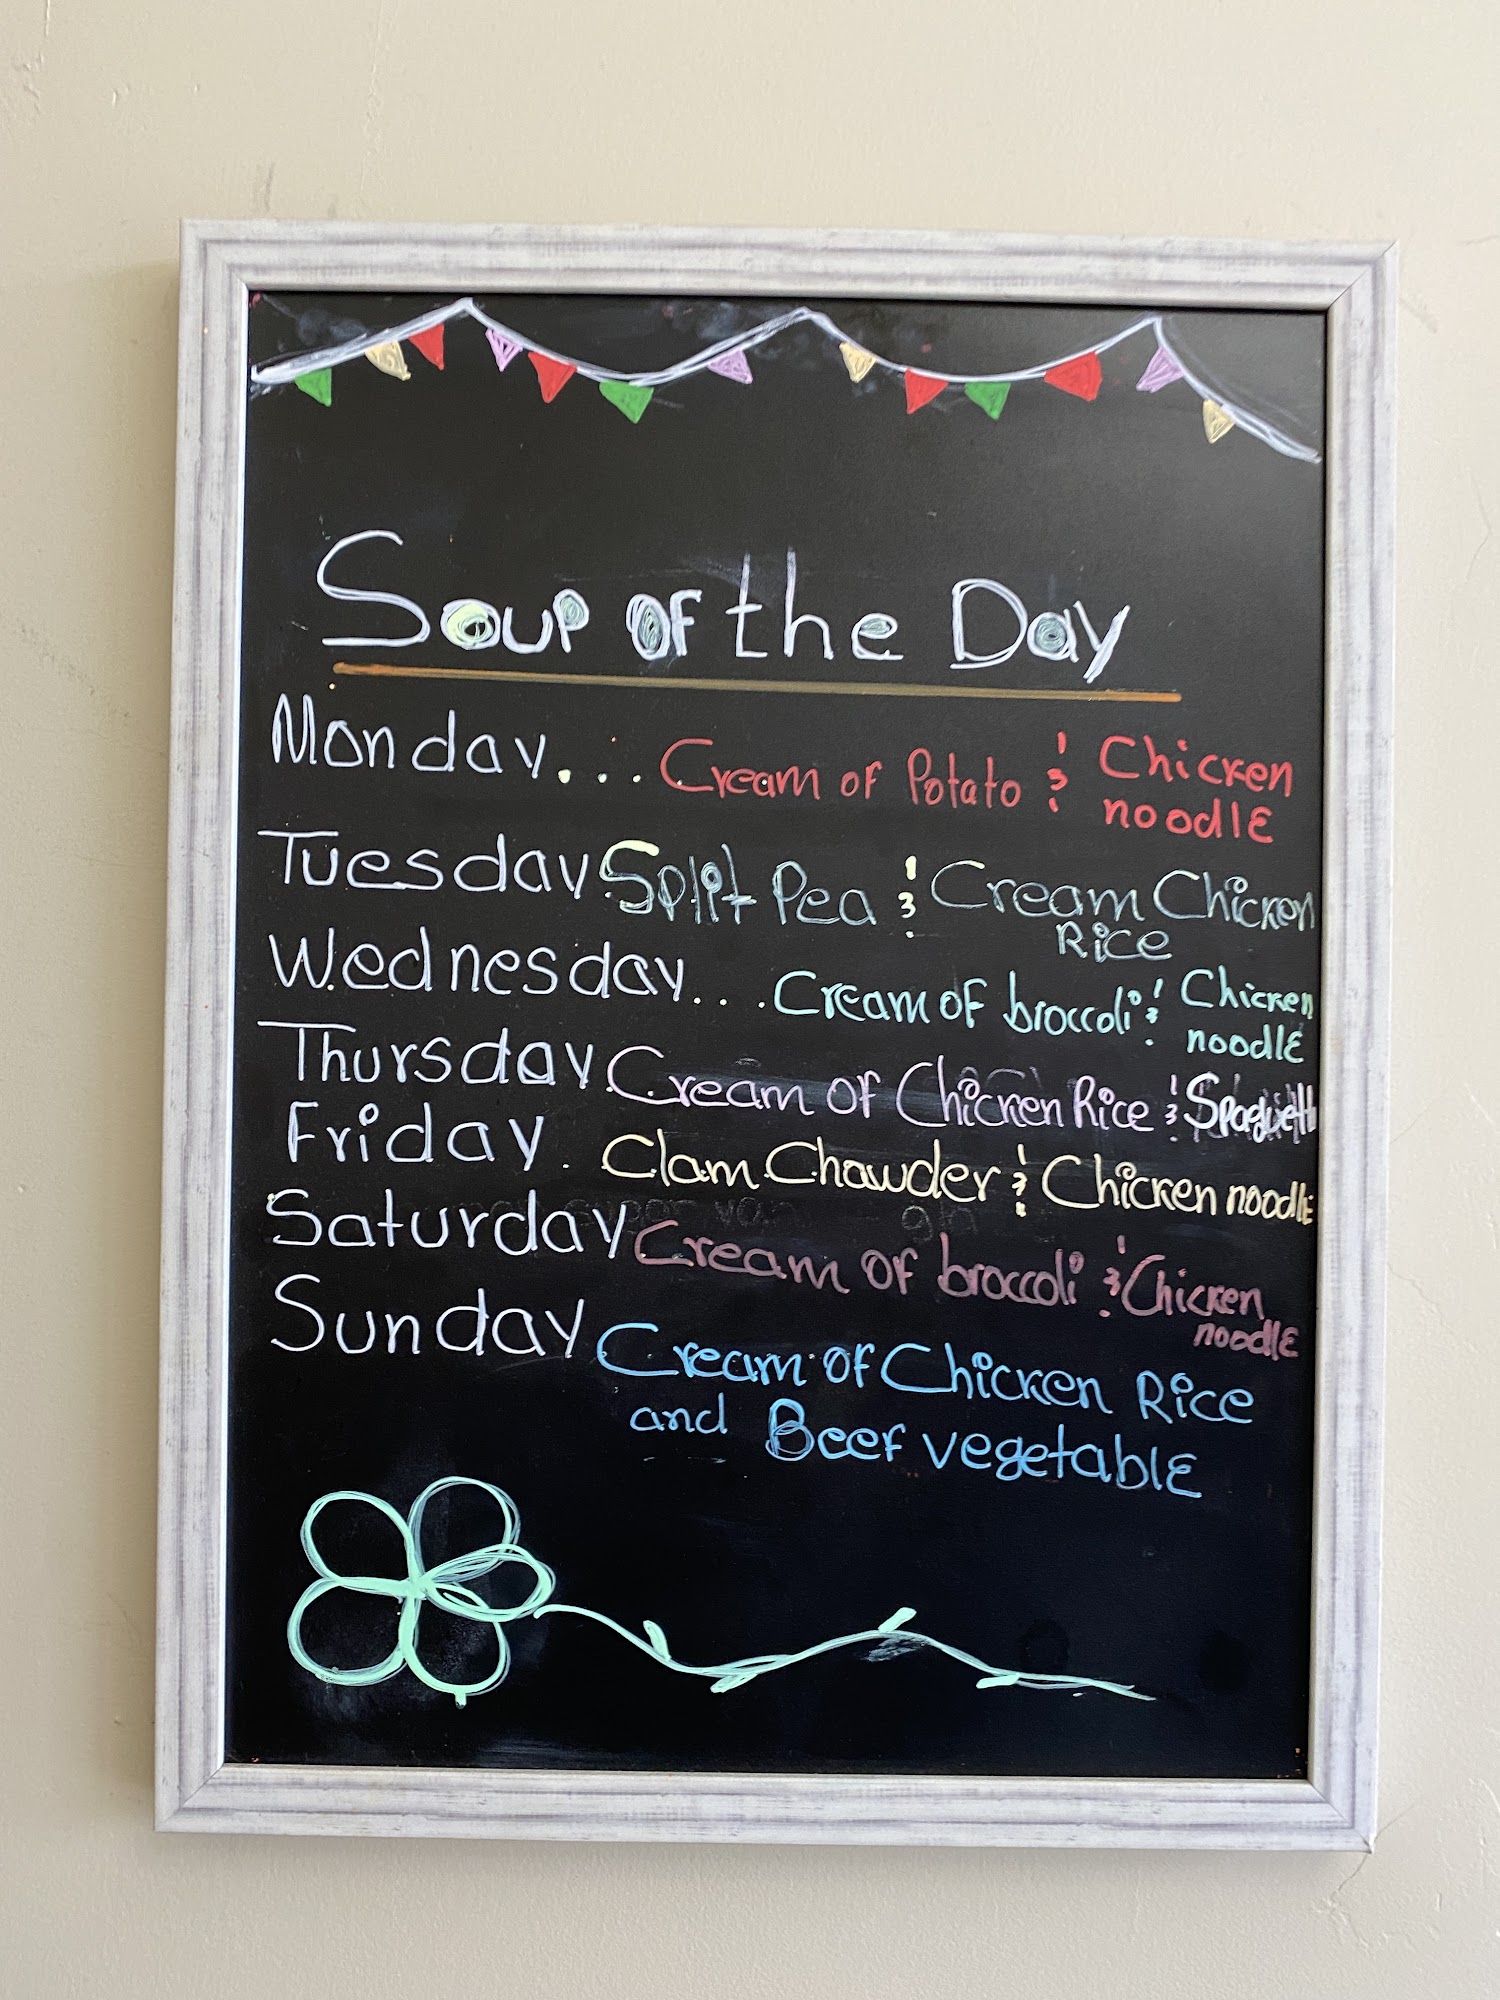 Soup of the Day
Monday... Cream of Potato & Chicken
noodle
Tuesday Split Pea & Cream Chicken
Rice
Wednesday... Cream of broccoli & Chicken
noodle
Thursday Cream of Chicken Rice & Spaguetti
Friday. Clam Chowder & Chicken noodle
Saturday Cream of broccoli & Chicken
noodle
Sunday Cream of Chicken Rice
and Beef vegetable